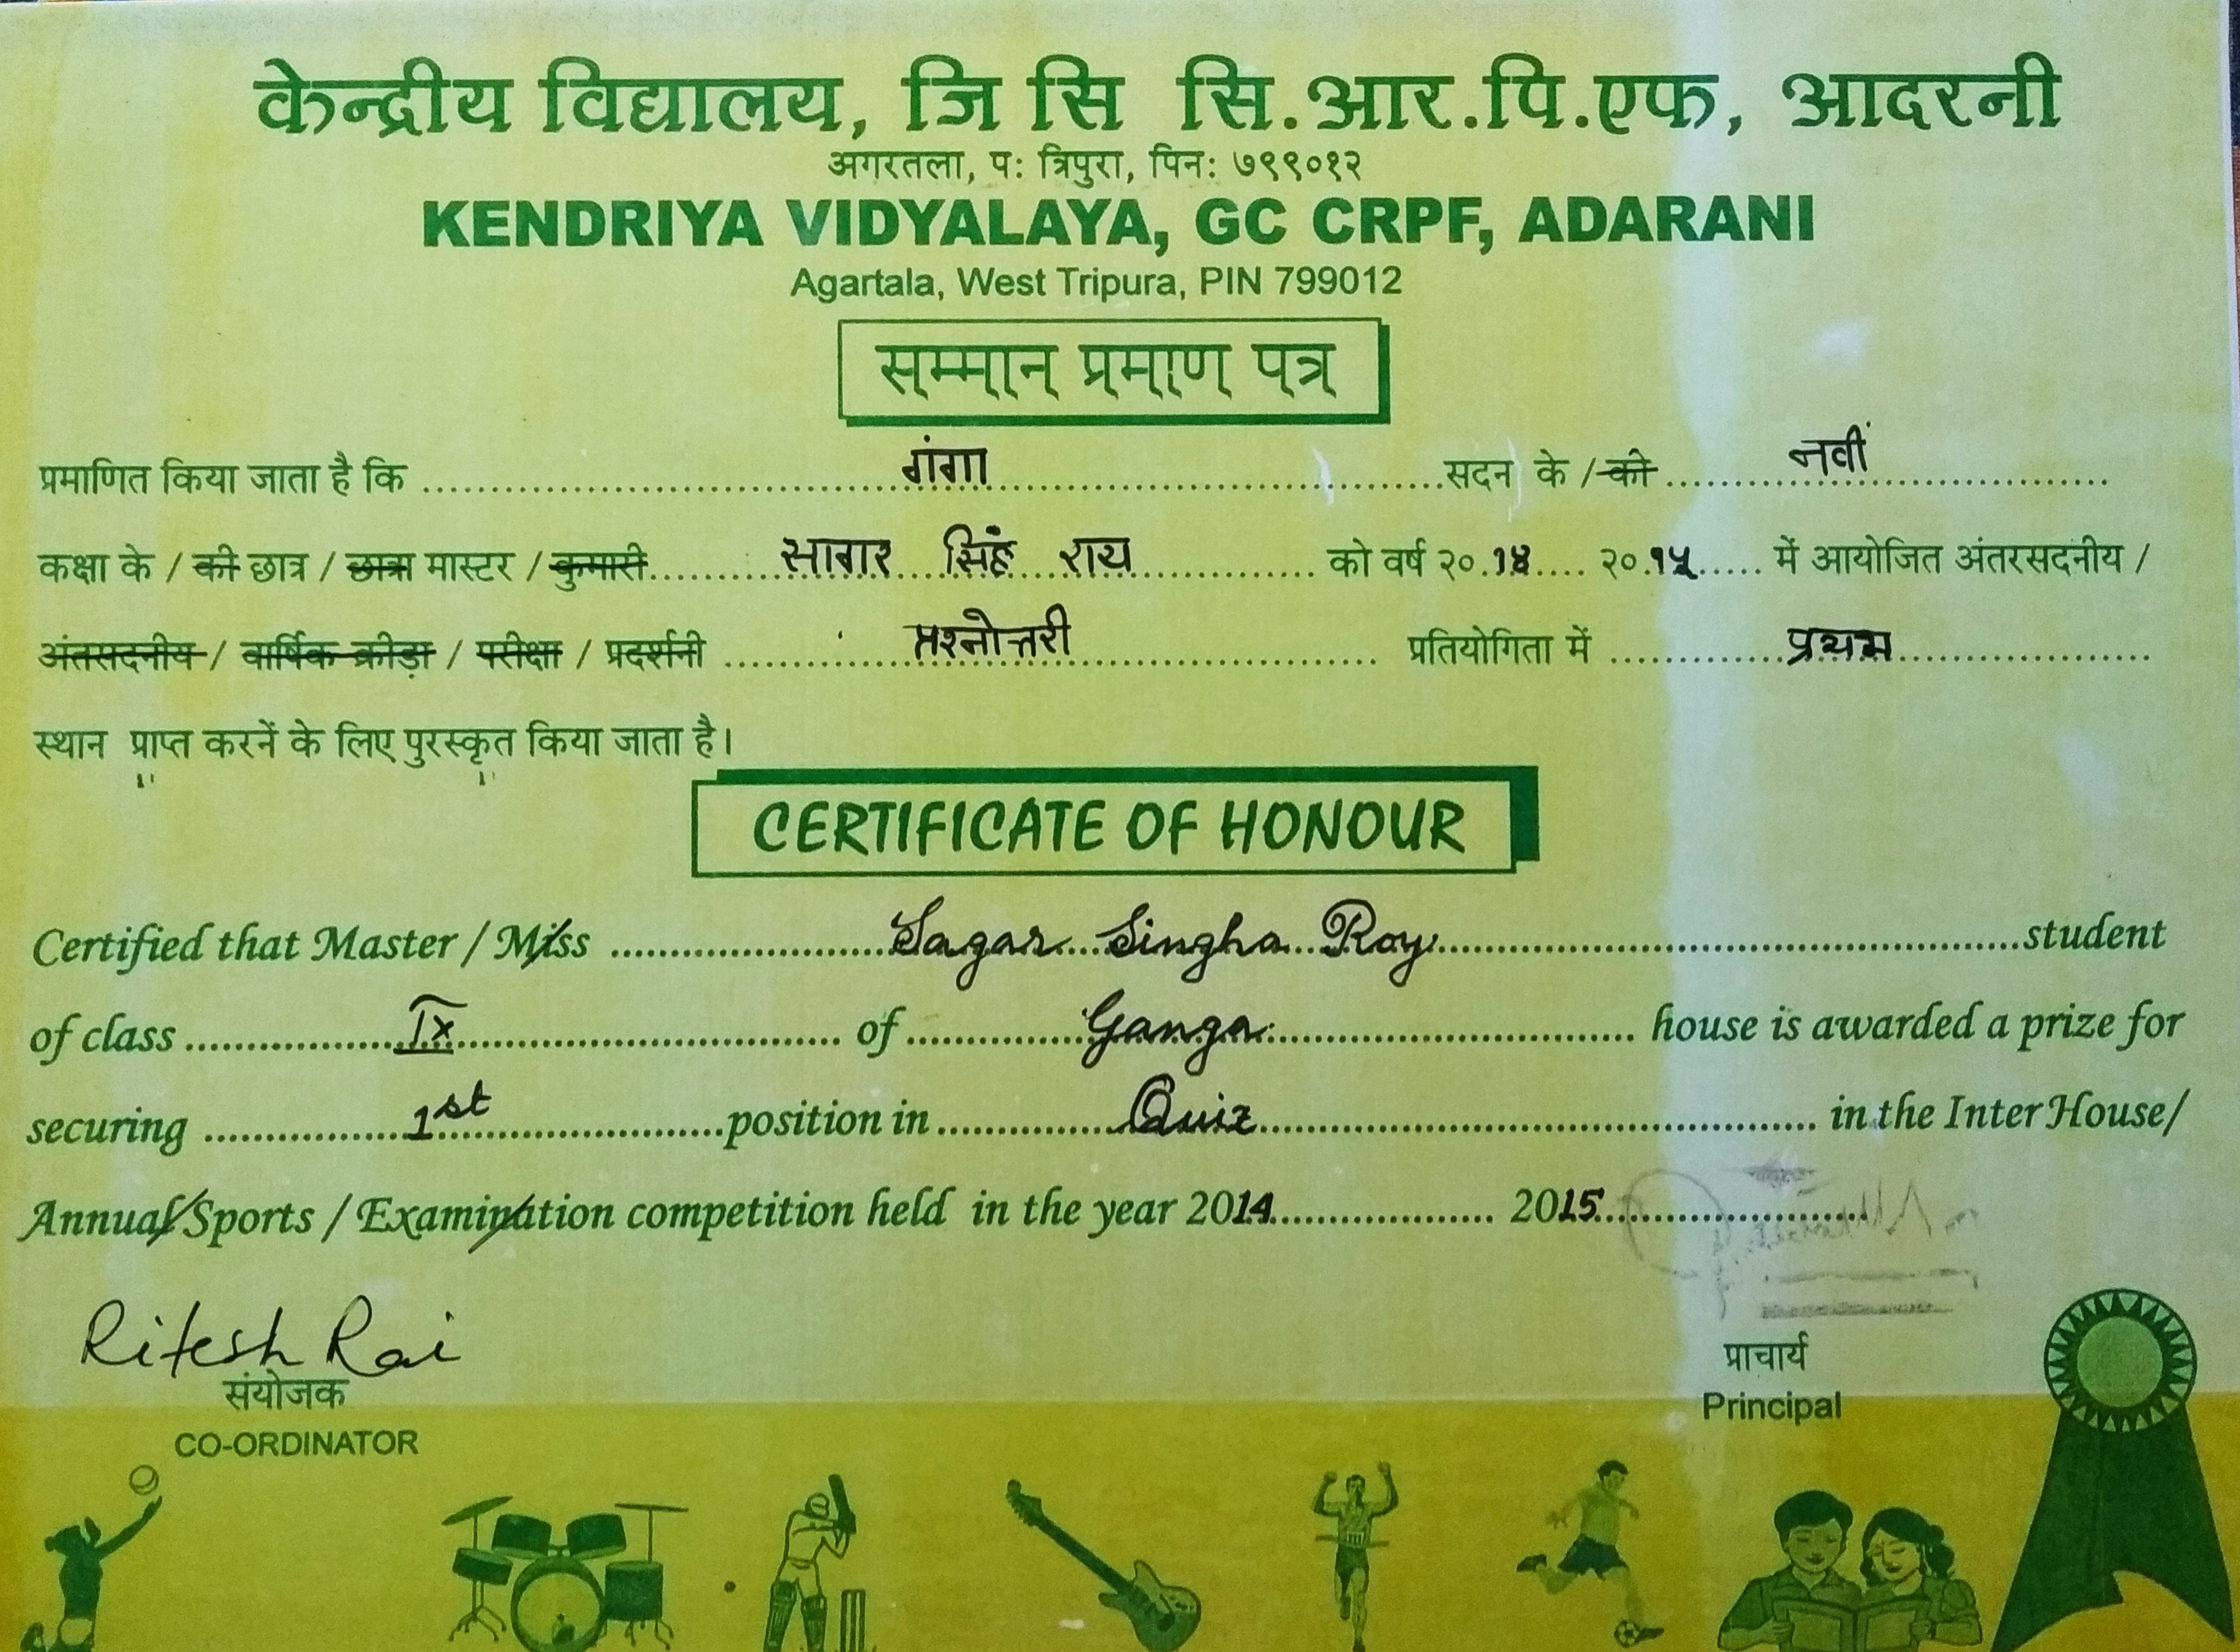 केन्द्रीय विद्यालय, जि सि सि.आर.पि.एफ, आदरनी
अगरतला, प: त्रिपुरा, पिन: ७९९०१२
KENDRIYA VIDYALAYA, GC CRPF, ADARANI
Agartala, West Tripura, PIN 799012
सम्मान प्रमाण पत्र
प्रमाणित किया जाता है कि गंगा सदन के / की नवीं
कक्षा के / की छात्र / छात्रा मास्टर / कुमारी सागर सिंह राय को वर्ष २०१४ २०१५ में आयोजित अंतरसदनीय /
अंतसदनीय / वार्षिक क्रीड़ा / परीक्षा / प्रदर्शनी प्रश्नोत्तरी प्रतियोगिता में प्रथम
स्थान प्राप्त करनें के लिए पुरस्कृत किया जाता है।
CERTIFICATE OF HONOUR
Certified that Master / Miss Sagar Singha Roy student
of class IX of Ganga house is awarded a prize for
securing 1st position in Quiz in the Inter House/
Annual/Sports / Examination competition held in the year 2014 2015
Ritesh Rai
संयोजक
CO-ORDINATOR
प्राचार्य
Principal